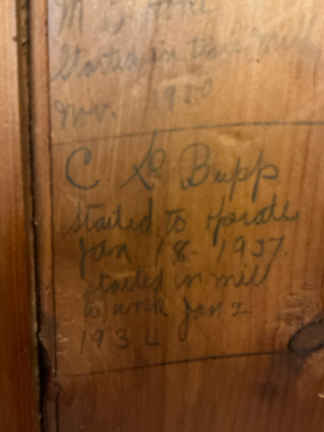 Started in this mill
Nov. 1920
C. L. Bupp
started to operate
Jan 18 1937.
started in mill
to work Jan 2
1934